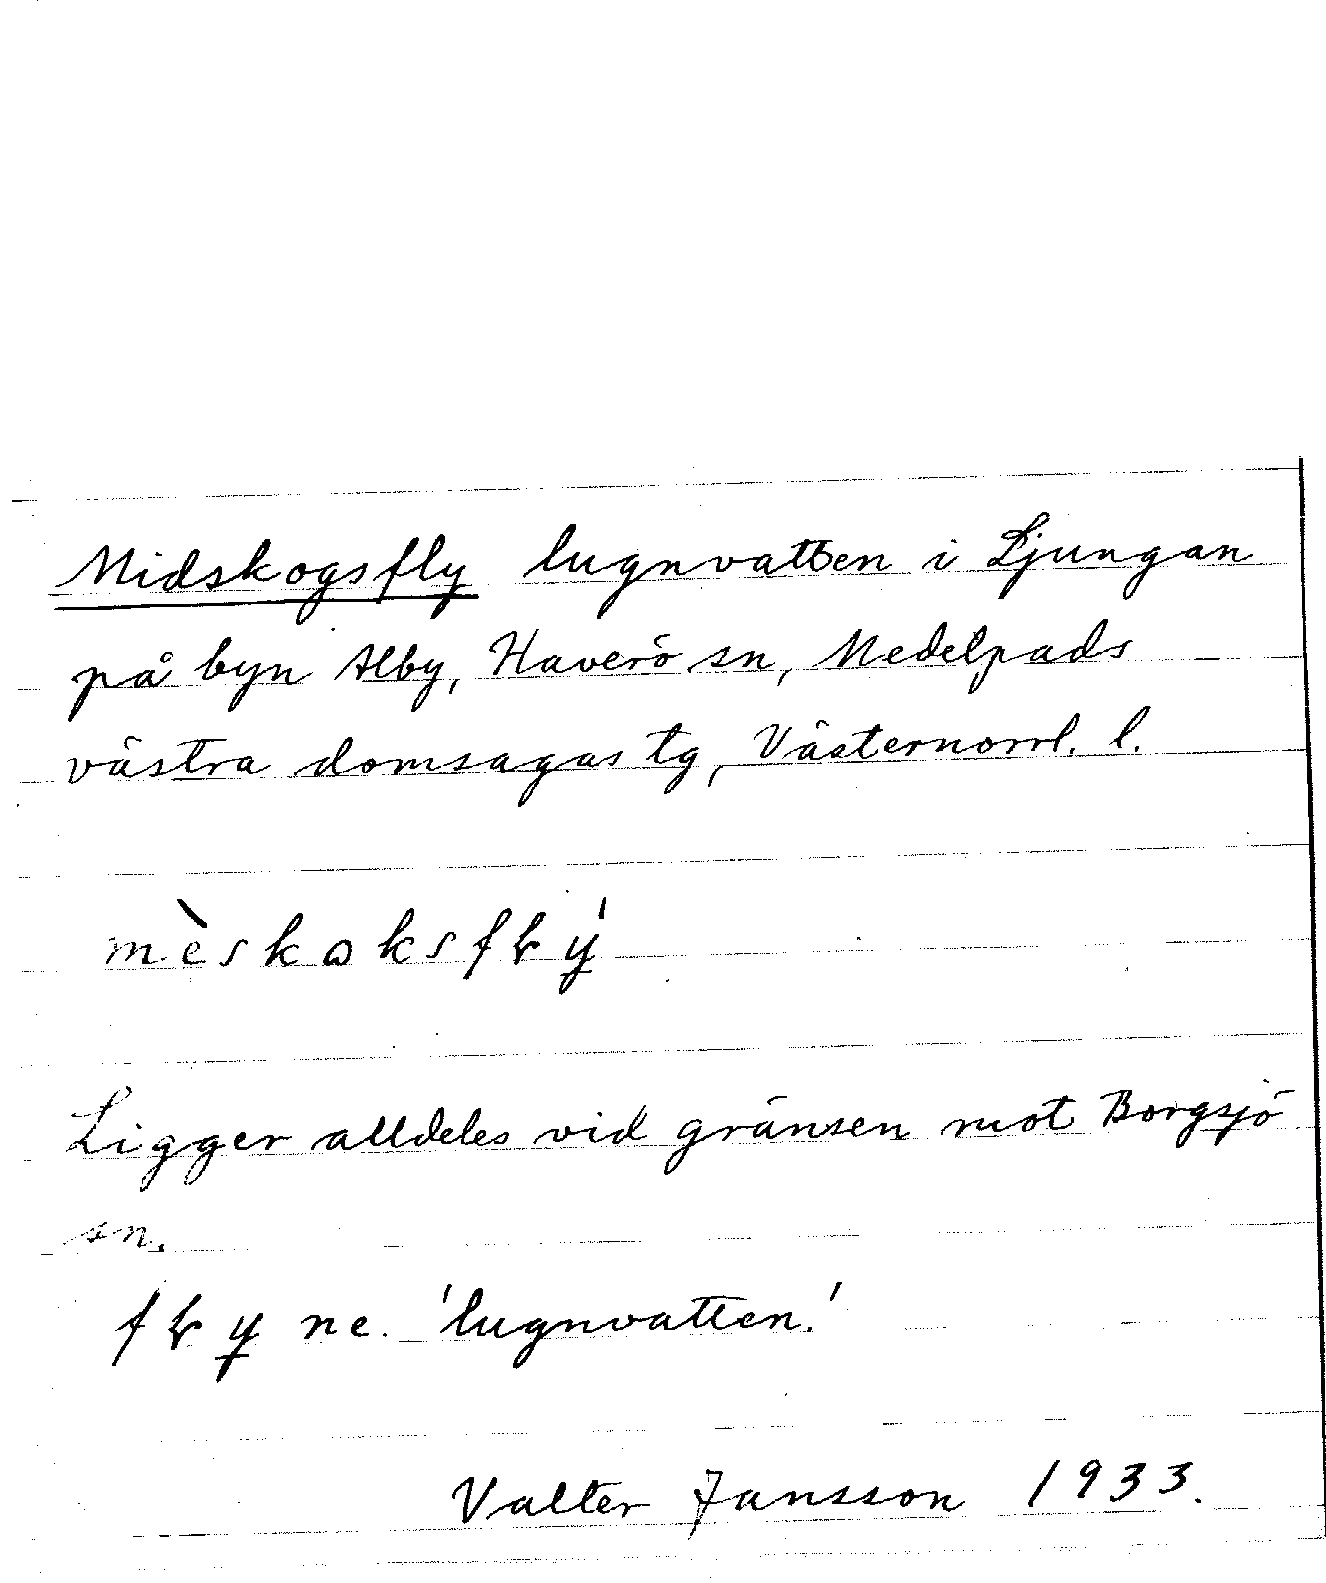 Midskogsfly lugnvatten i Ljungan
på byn Alby, Haverö sn, Medelpads
västra domsagas tg, Västernorrl. l.
mèskoksfɽý
Ligger alldeles vid gränsen mot Borgsjö
sn.
fɽy ne. 'lugnvatten.'
Valter Jansson 1933.